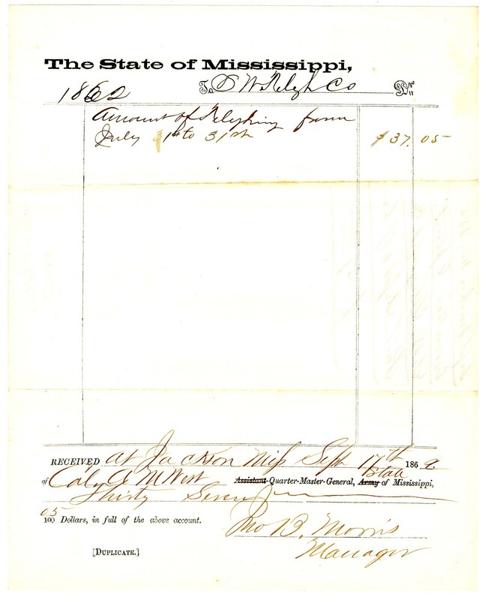 The State of Mississippi,
1862 To S W Telgh Co Dr.
Amount of Telghing from
July 1st to 31st $37.05
RECEIVED at Jackson Miss Sept 17th 1862
of Col A M West Assistant Quarter-Master-General, Army State of Mississippi,
Thirty Seven
05
100 Dollars, in full of the above account.
Jno B. Morris
Manager
[DUPLICATE.]